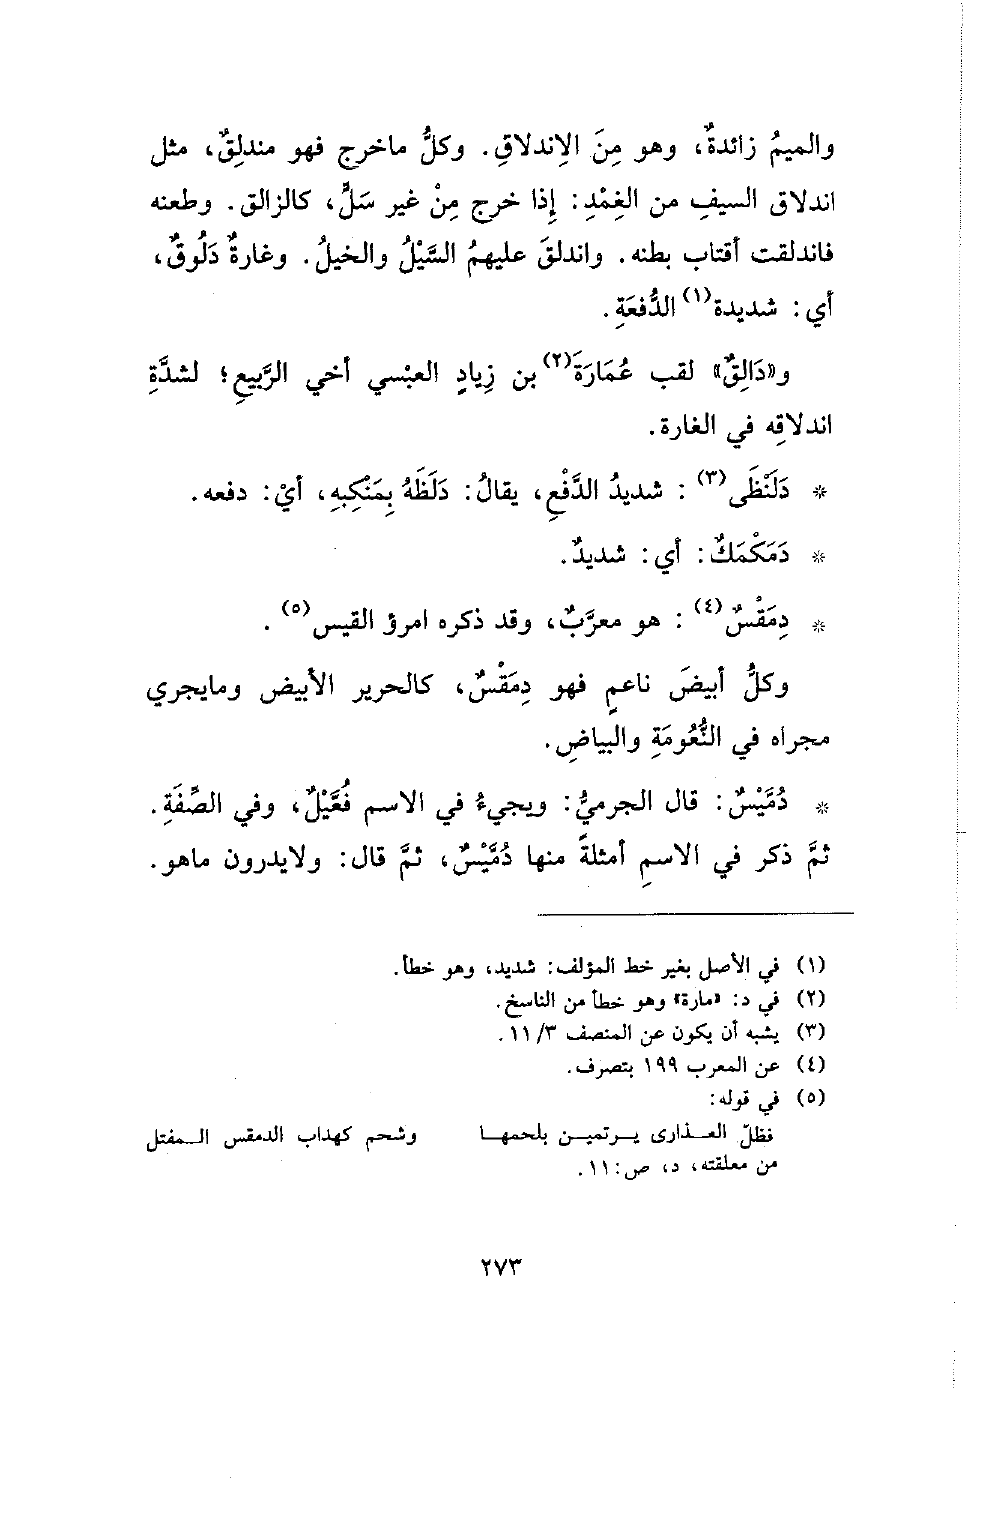 والميمُ زائدةٌ، وهو مِنَ الِاندلاقِ. وكلُّ ماخرج فهو مندلِقٌ، مثل
اندلاق السيفِ من الغِمْدِ: إِذا خرج مِنْ غير سَلٍّ، كالزالق. وطعنه
فاندلقت أقتاب بطنه. واندلقَ عليهمُ السَّيْلُ والخيلُ. وغارةٌ دَلُوقٌ،
أي: شديدة(١) الدُّفعَةِ.
و«دَالِقٌ» لقب عُمَارَةَ(٢) بن زِيادٍ العبْسي أخي الرَّبيعِ؛ لشدَّةِ
اندلاقِه في الغارة.
* دَلَنْظَى(٣): شديدُ الدَّفْعِ، يقالُ: دَلَظَهُ بِمَنْكِبِهِ، أيْ: دفعه.
* دَمَكْمَكٌ: أي: شديدٌ.
* دِمَقْسٌ(٤): هو معرَّبٌ، وقد ذكره امرؤ القيس(٥).
وكلُّ أبيضَ ناعمٍ فهو دِمَقْسٌ، كالحرير الأبيض ومايجري
مجراه في النُّعُومَةِ والبياضِ.
* دُمَّيْسٌ: قال الجرميُّ: ويجيءُ في الاسم فُعَّيْلٌ، وفي الصِّفَةِ.
ثمَّ ذكر في الاسمِ أمثلةً منها دُمَّيْسٌ، ثمَّ قال: ولايدرون ماهو.
(١) في الأصل بغير خط المؤلف: شديد، وهو خطأ.
(٢) في د: «مارة» وهو خطأ من الناسخ.
(٣) يشبه أن يكون عن المنصف ٣/١١.
(٤) عن المعرب ١٩٩ بتصرف.
(٥) في قوله:
فظلّ العـذارى يـرتميـن بلحمهـا وشحم كهداب الدمقس الـمفتل
من معلقته، د، ص: ١١.
٢٧٣